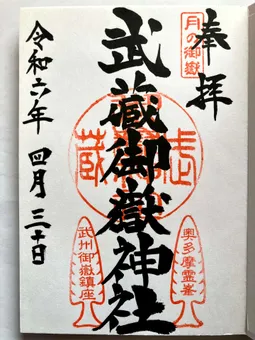 奉拝
月の御嶽
武蔵御嶽神社
奥多摩霊峯
武州御嶽鎮座
令和六年 四月三十日